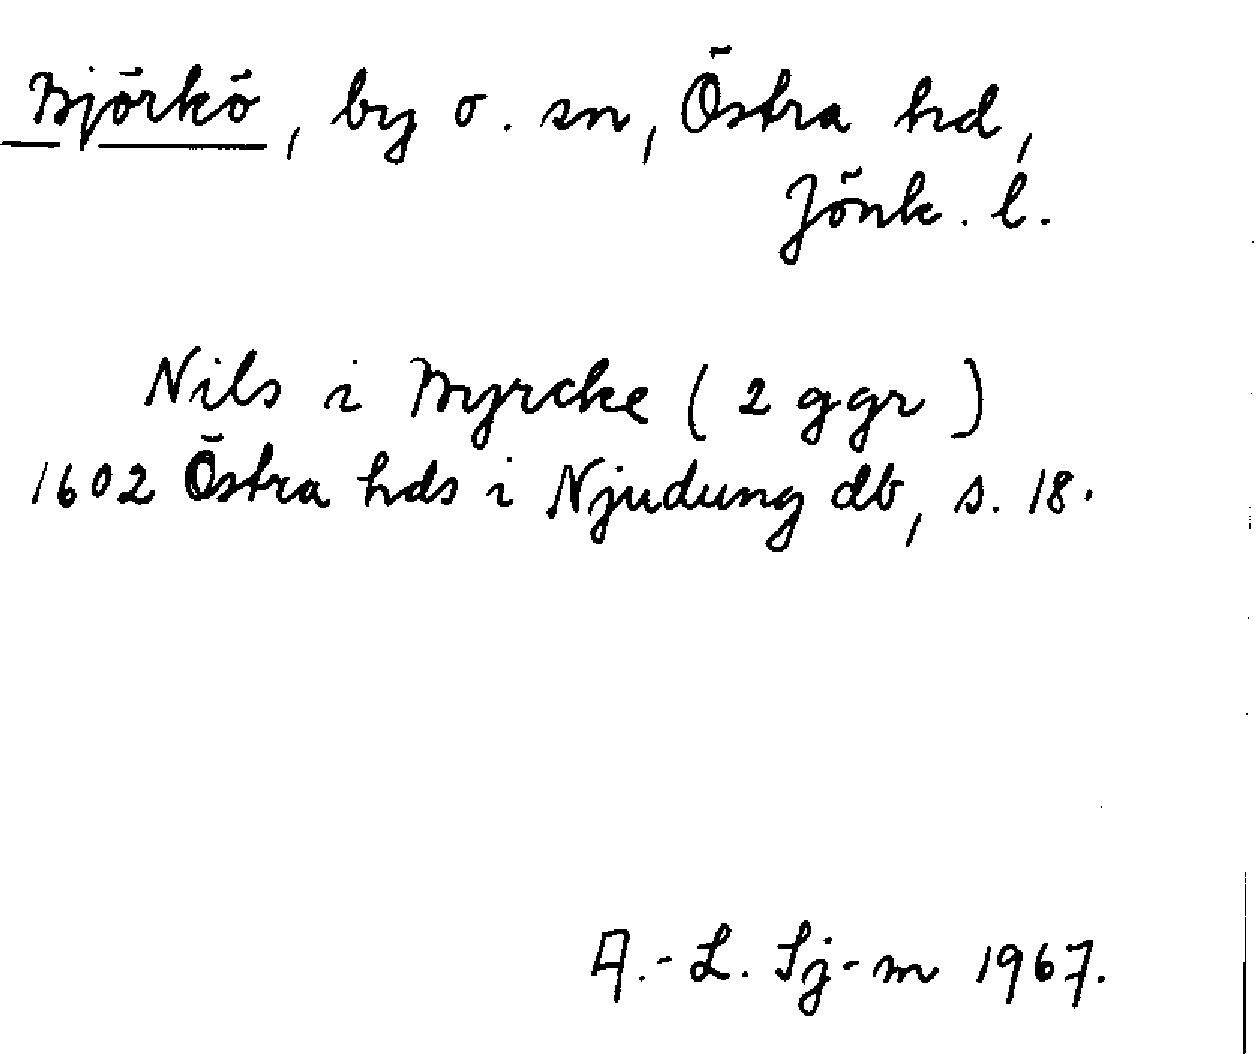 Björkö, by o. sn, Östra hd,
Jönk. l.
Nils i Byrcke (2 ggr)
1602 Östra hds i Njudung db, s. 18.
A.-L. Sj-m 1967.